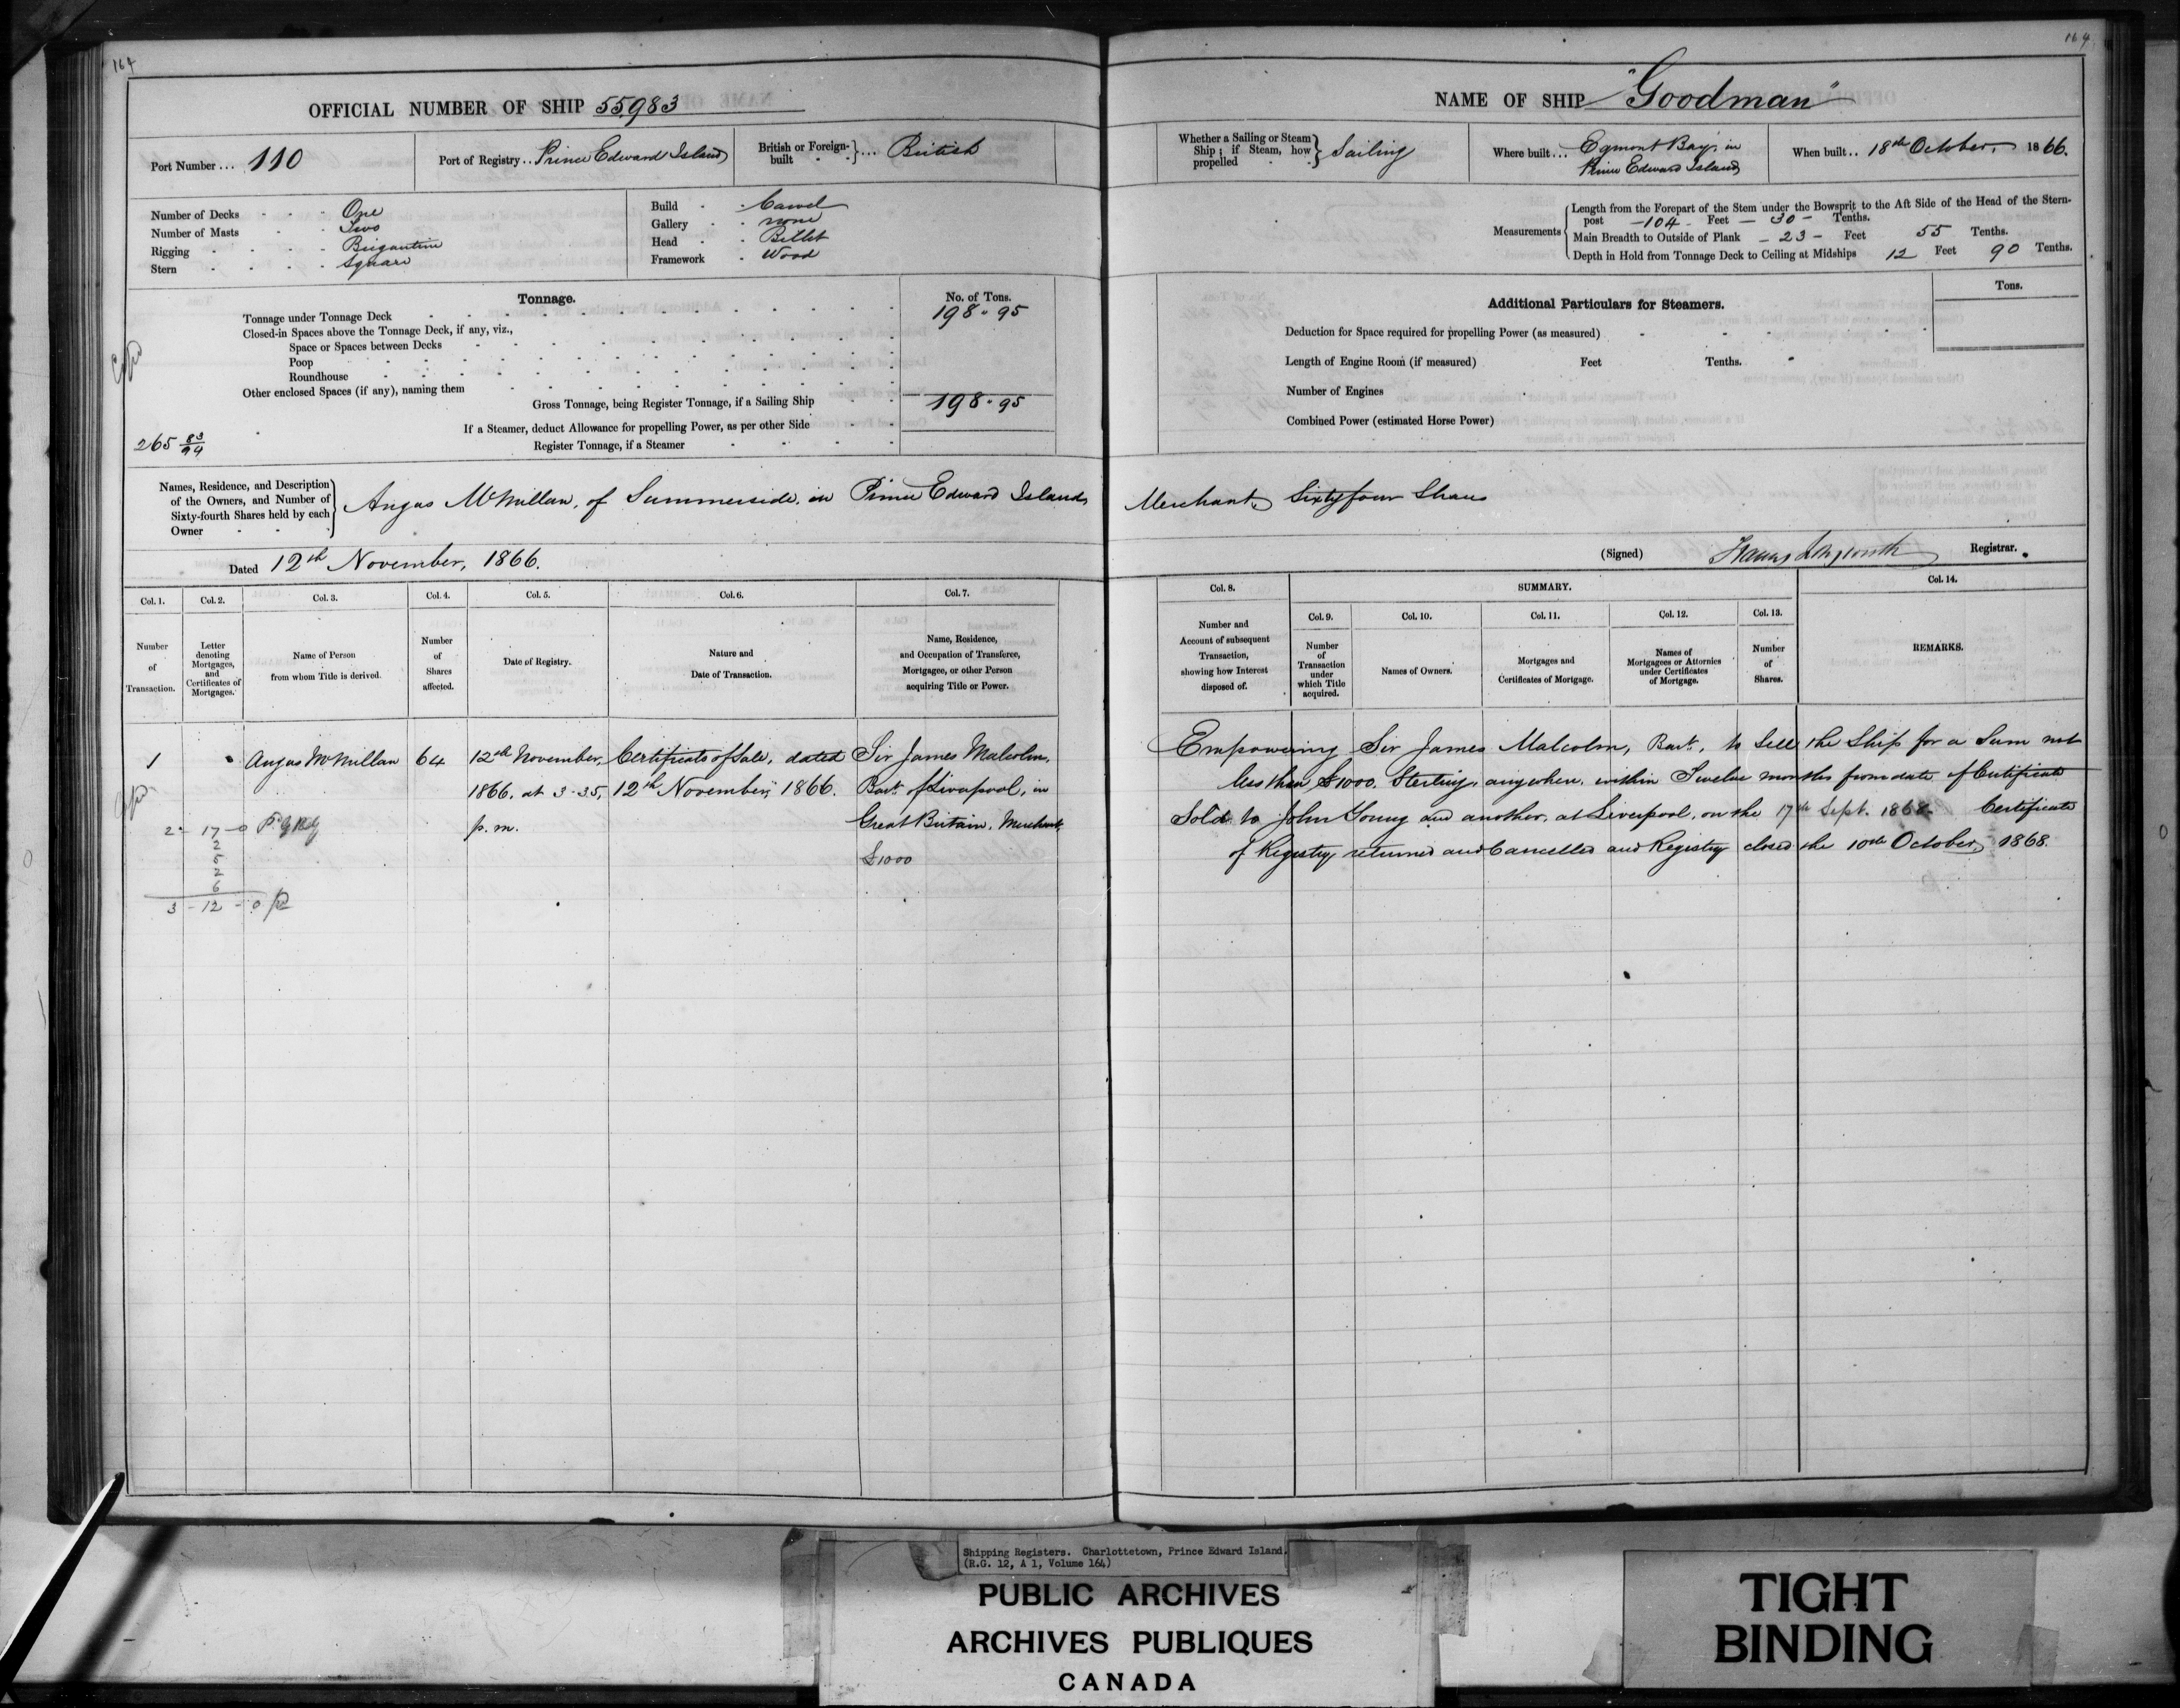 164
OFFICIAL NUMBER OF SHIP 55,983
Port Number ... 110
Port of Registry .. Prince Edward Island
British or Foreign-built } ... British
Number of Decks - - - One
Number of Masts - - Two
Rigging - - - - Brigantine
Stern - - - - Square
Build - - Carvel
Gallery - - none
Head - - Billet
Framework - Wood
Tonnage.
No. of Tons.
Tonnage under Tonnage Deck 198 " 95
Closed-in Spaces above the Tonnage Deck, if any, viz.,
Space or Spaces between Decks
Poop
Roundhouse
Other enclosed Spaces (if any), naming them
Gross Tonnage, being Register Tonnage, if a Sailing Ship 198 " 95
If a Steamer, deduct Allowance for propelling Power, as per other Side
265 83/94
Register Tonnage, if a Steamer
Names, Residence, and Description
of the Owners, and Number of
Sixty-fourth Shares held by each
Owner - -
Angus McMillan, of Summerside, in Prince Edward Island,
Dated 12th November, 1866.
Col. 1.
Number
of
Transaction.
Col. 2.
Letter
denoting
Mortgages,
and
Certificates of
Mortgages.
Col. 3.
Name of Person
from whom Title is derived.
Col. 4.
Number
of
Shares
affected.
Col. 5.
Date of Registry.
Col. 6.
Nature and
Date of Transaction.
Col. 7.
Name, Residence,
and Occupation of Transferee,
Mortgagee, or other Person
acquiring Title or Power.
1
Angus McMillan
64
12th November,
1866. at 3-35,
p.m.
Certificate of Sale, dated
12th November, 1866.
Sir James Malcolm,
Bart. of Liverpool, in
Great Britain, Merchant,
£1000
2 - 17 - 0
2
5
2
6
3 - 12 - 0
164
NAME OF SHIP "Goodman"
Whether a Sailing or Steam
Ship; if Steam, how
propelled - -
Sailing
Where built ... Egmont Bay, in
Prince Edward Island
When built .. 18th October, 1866.
Measurements
Length from the Forepart of the Stem under the Bowsprit to the Aft Side of the Head of the Stern-
post - 104 - Feet - 30 - Tenths.
Main Breadth to Outside of Plank - 23 - Feet 55 Tenths.
Depth in Hold from Tonnage Deck to Ceiling at Midships 12 Feet 90 Tenths.
Additional Particulars for Steamers.
Tons.
Deduction for Space required for propelling Power (as measured)
Length of Engine Room (if measured) Feet Tenths.
Number of Engines
Combined Power (estimated Horse Power)
Merchant, Sixty four Shares
(Signed) Longworth Registrar.
Col. 8.
Number and
Account of subsequent
Transaction,
showing how Interest
disposed of.
SUMMARY.
Col. 9.
Number
of
Transaction
under
which Title
acquired.
Col. 10.
Names of Owners.
Col. 11.
Mortgages and
Certificates of Mortgage.
Col. 12.
Names of
Mortgagees or Attornies
under Certificates
of Mortgage.
Col. 13.
Number
of
Shares.
Col. 14.
REMARKS.
Empowering Sir James Malcolm, Bart., to Sell the Ship for a Sum not
less than £1000. Sterling, anywhere, within Twelve months from date of Certificate
Sold to John Young and another, at Liverpool, on the 17th Sept. 1868. Certificate
of Registry returned and Cancelled and Registry closed the 10th October, 1868.
Shipping Registers. Charlottetown, Prince Edward Island.
(R.G. 12, A 1, Volume 164)
PUBLIC ARCHIVES
ARCHIVES PUBLIQUES
CANADA
TIGHT
BINDING